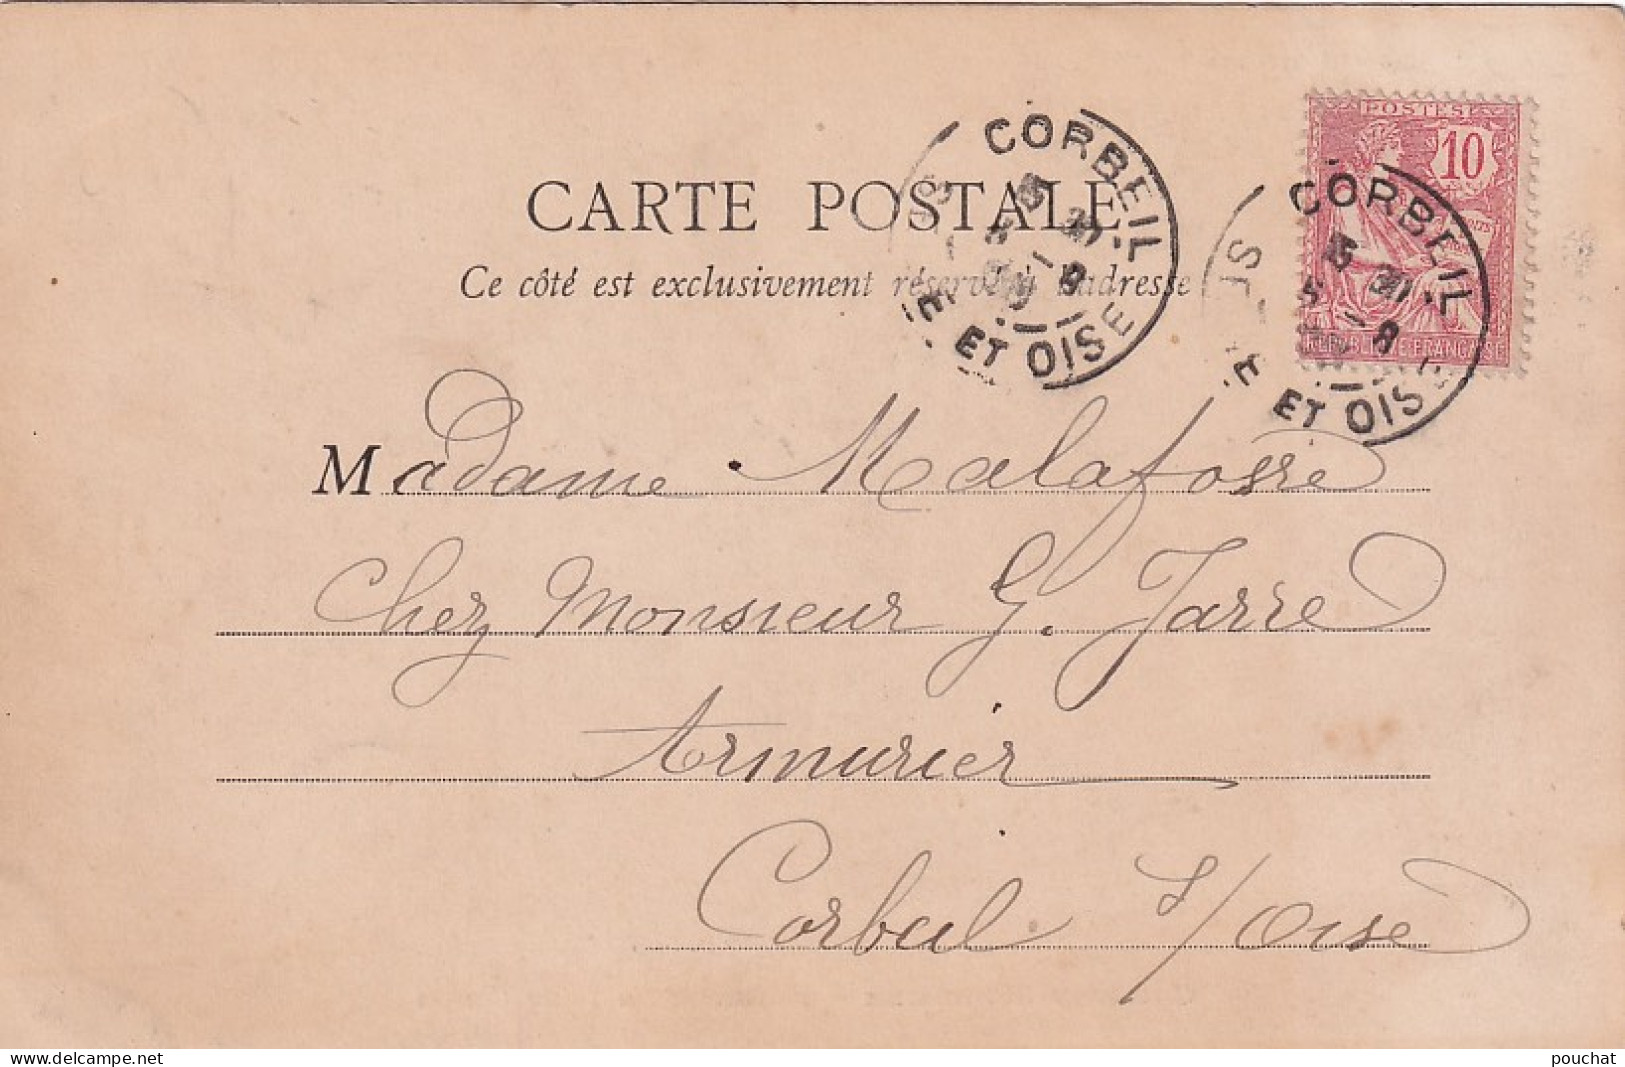 POSTES
10
RÉPUBLIQUE FRANÇAISE
CORBEIL
ET OISE
CORBEIL
ET OISE
CARTE POSTALE
Ce côté est exclusivement réservé à l'adresse
Madame Malafosse
Chez Monsieur G. Jarre
Armurier
Corbeil S/Oise
www.delcampe.net
pouchat